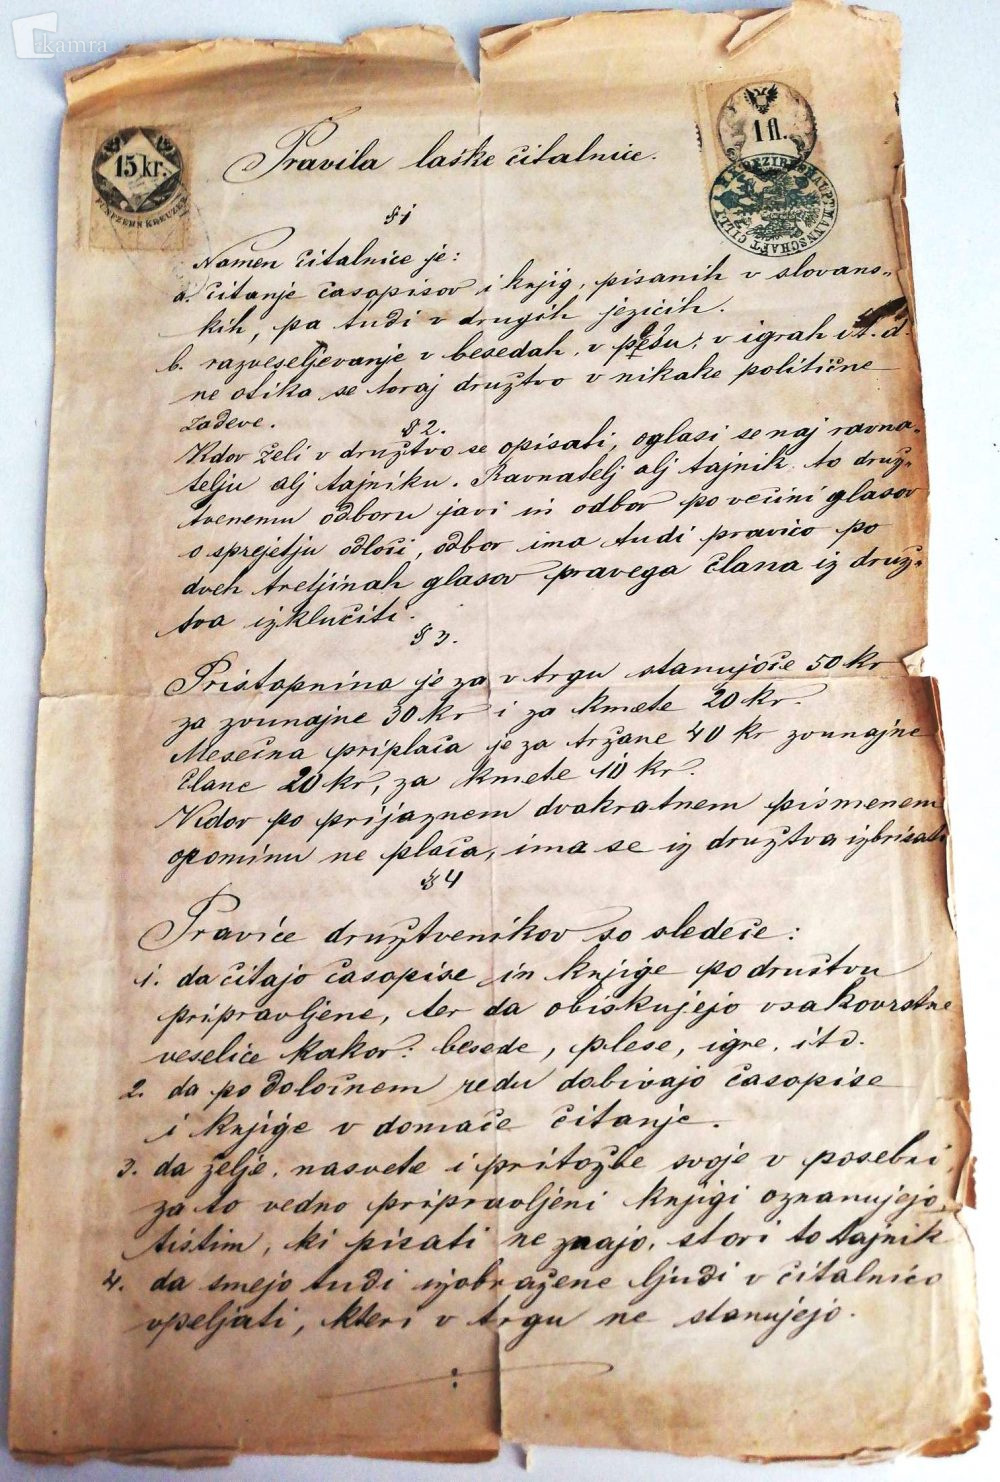 kamra
15 kr.
FÜNFZEHN KREUZER
1 fl.
K.K. BEZIRKSHAUPTMANNSCHAFT CILLI
Pravila laške čitalnice.
§ 1
Namen čitalnice je:
a. čitanje časopisov i knjig, pisanih v slovans-
kih, pa tudi v drugih jezicih.
b. razveseljevanje v besedah, v petju, v igrah i t. d.
ne otika se toraj družtvo v nikake politične
zadeve.
§ 2.
Kdor želi v družtvo se opisati, oglasi se naj ravna-
telju alj tajniku. Ravnatelj alj tajnik to druž-
tvenemu odboru javi in odbor po večini glasov
o sprejetju odloči, odbor ima tudi pravico po
dveh tretjinah glasov pravega člana iz druž-
tva izključiti.
§ 3.
Pristopnina je za v trgu stanujoče 50 kr
za zvunajne 30 kr i za kmete 20 kr.
Mesečna priplača je za tržane 40 kr zvunajne
člane 20 kr, za kmete 10 kr.
Kdor po prijaznem dvakratnem pismenem
opominu ne plača, ima se iz družtva izbrisati
§ 4
Pravice družtvenikov so sledeče:
1. da čitajo časopise in knjige po družtvu
pripravljene, ter da obiskujejo vsakovrstne
veselice kakor: besede, plese, igre, itd.
2. da po določnem redu dobivajo časopise
i knjige v domače čitanje.
3. da želje, nasvete i pritožbe svoje v posebni
za to vedno pripravljeni knjigi oznanujejo,
tistim, ki pisati ne znajo, stori to tajnik
4. da smejo tudi izobražene ljudi v čitalnico
vpeljati, kteri v trgu ne stanujejo.